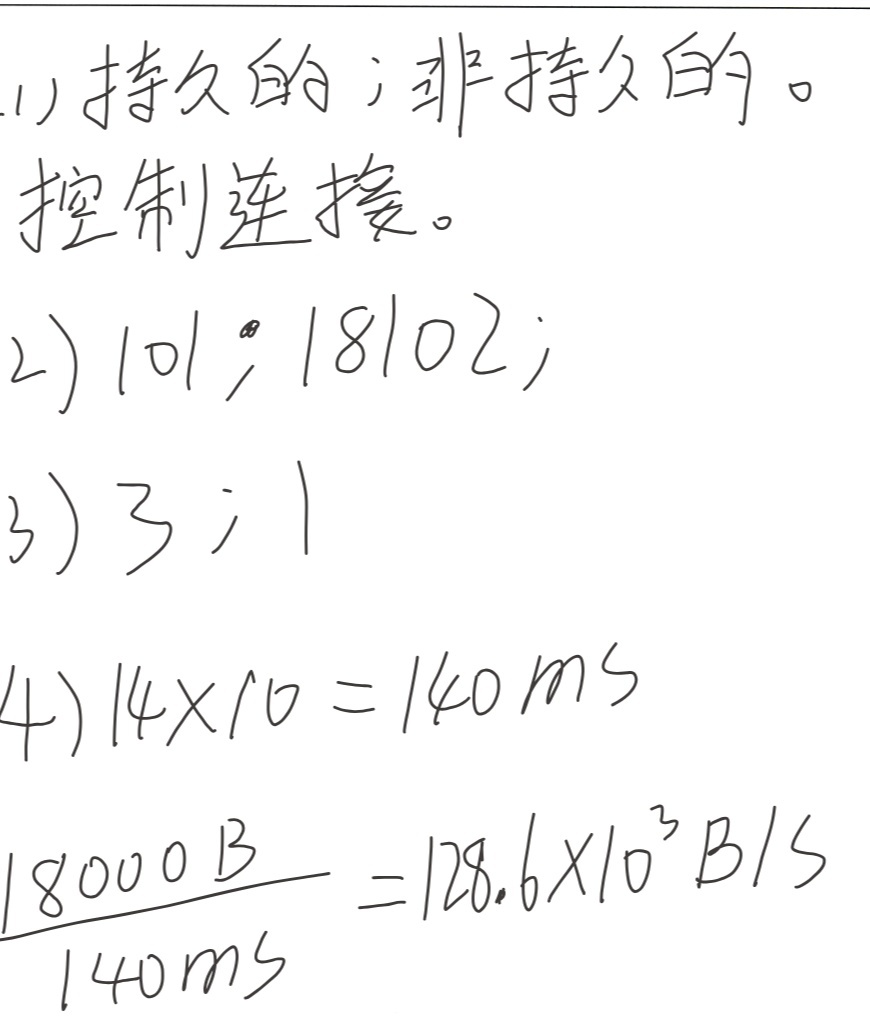 .1) 持久的；非持久的。
控制连接。
2) 101；18102；
3) 3；1
4) 14×10 = 140 ms
18000 B / 140 ms = 128.6×10³ B/S